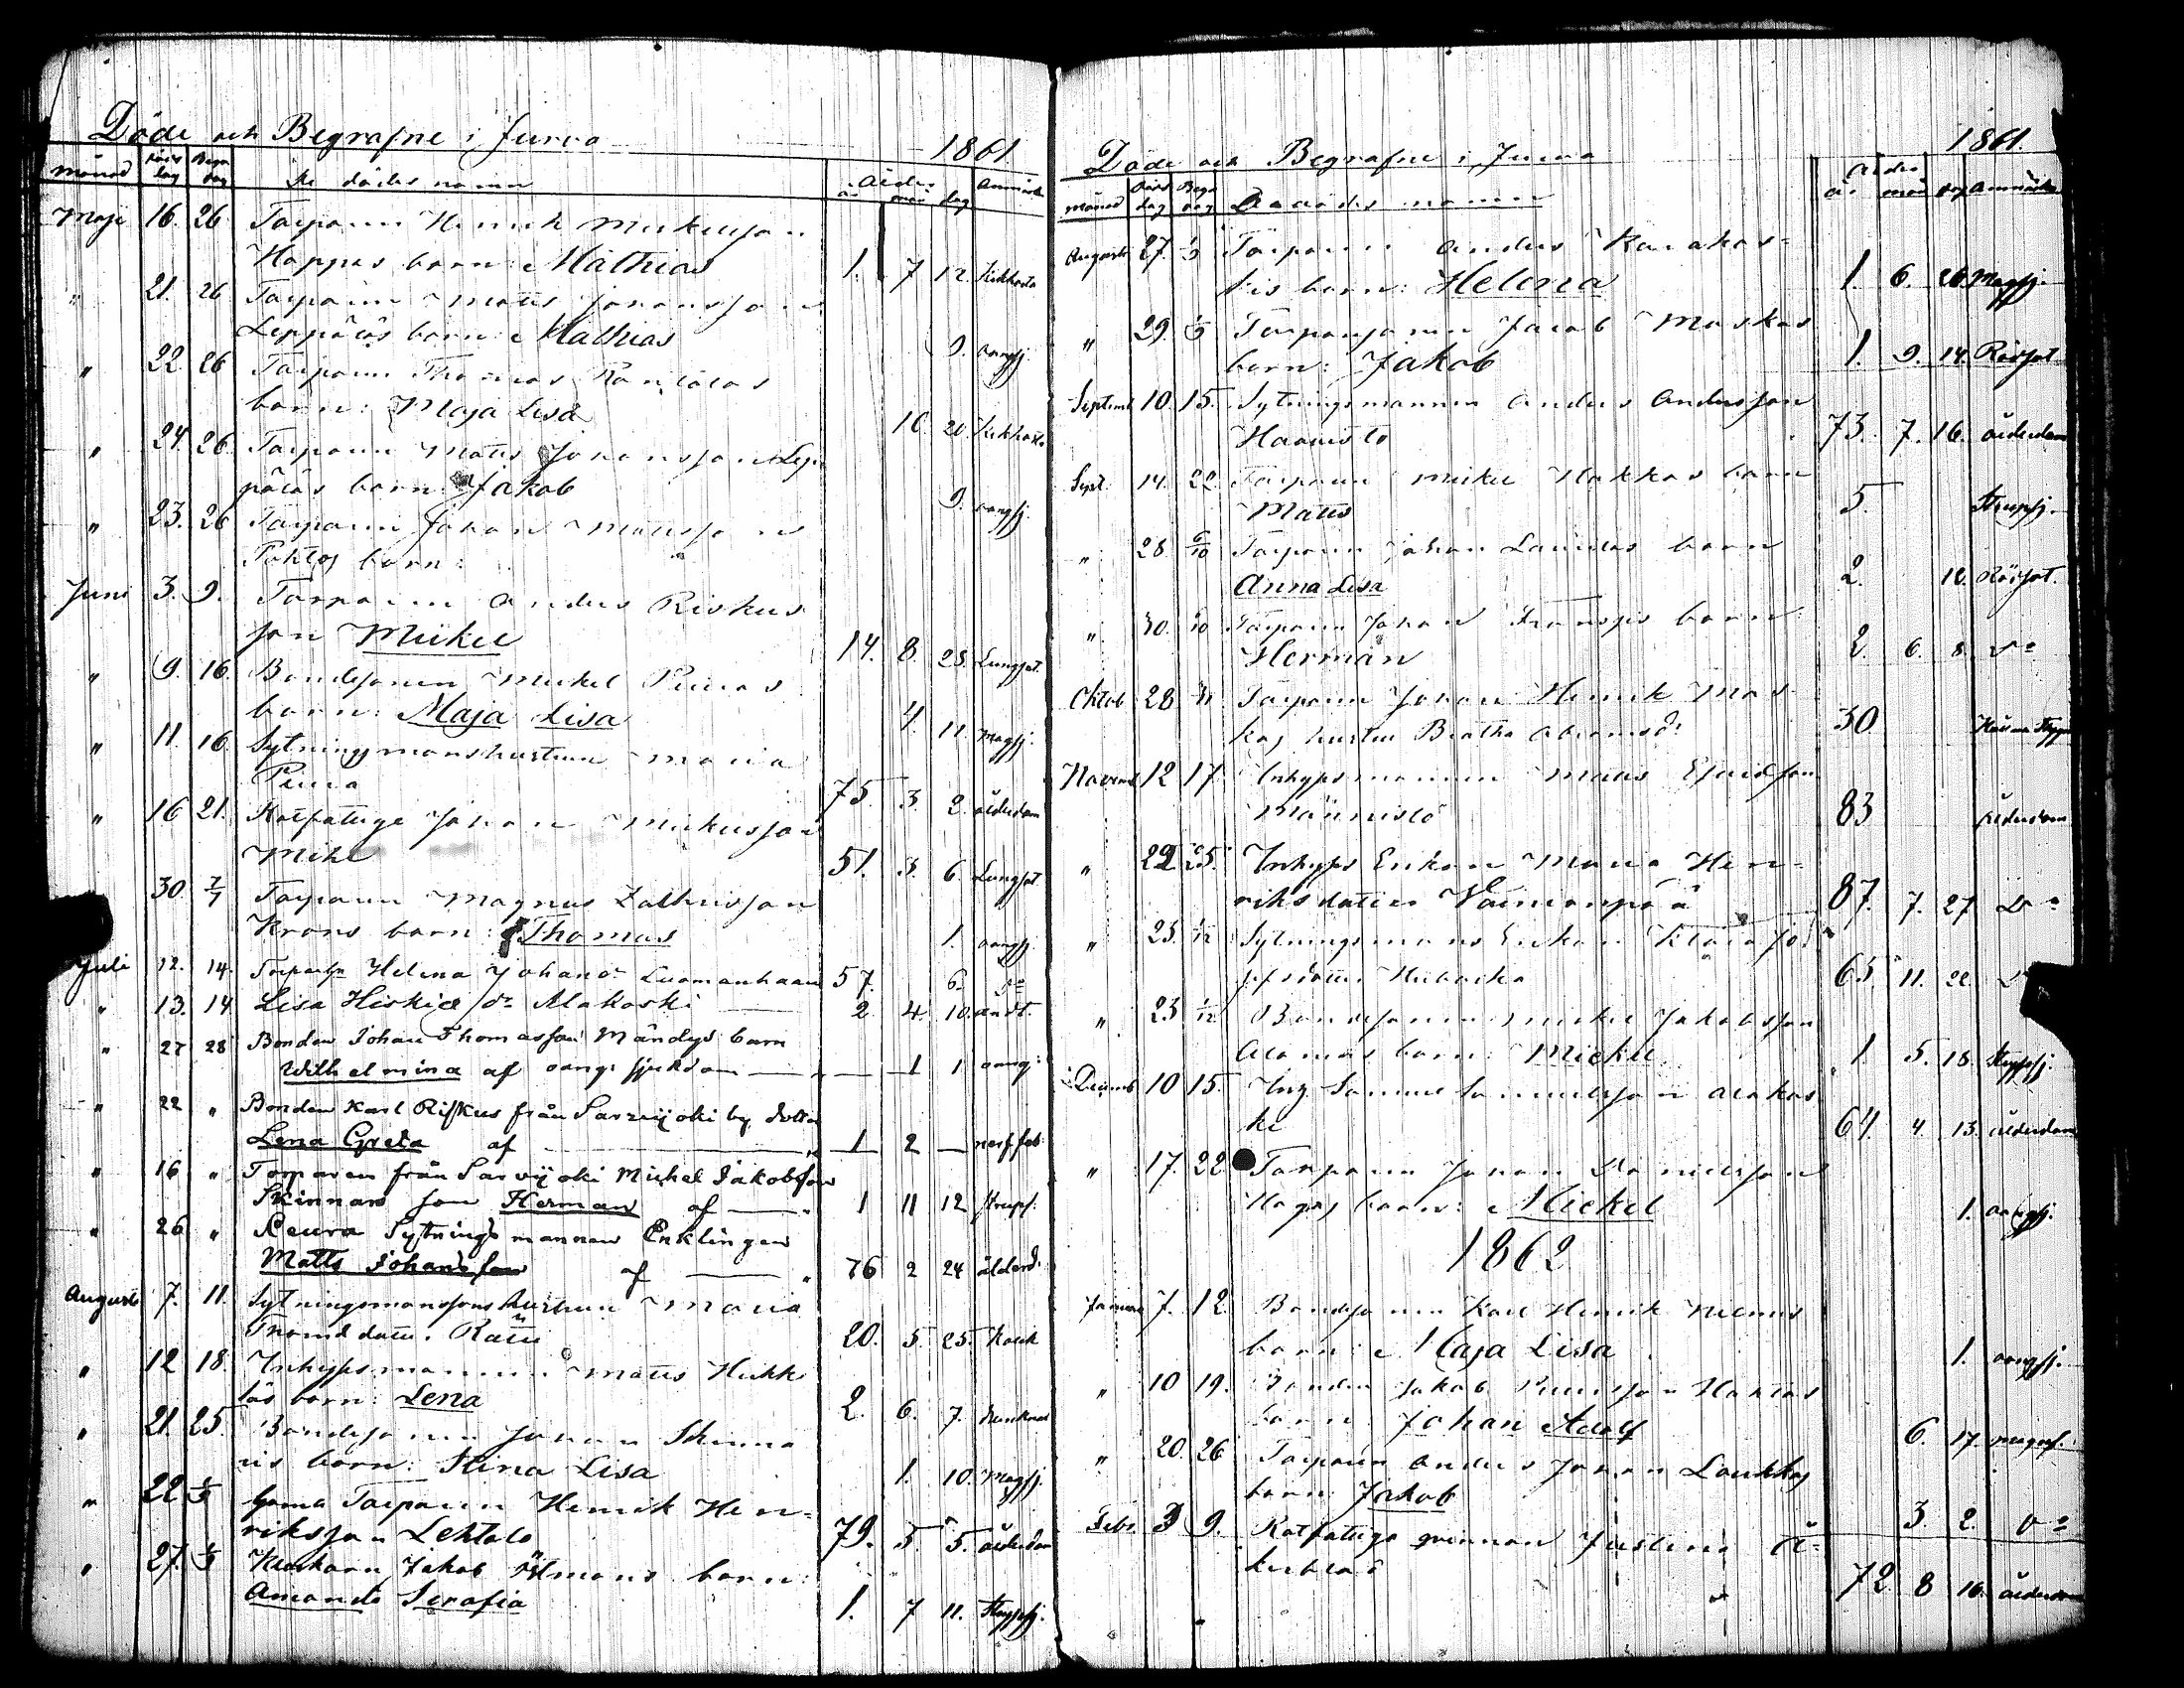 Döde och Begrafne i Jurva 1861.
månad döds dag Begr dag De dödes namn Ålder år mån dag Anmärkn
Maji 16. 26 Torparen Henrik Mickelsson
Koppas barn: Mathias 1. 7 12. Kikhosta
" 21. 26 Torparen Matts Johansson
Leppäläs barn: Mathias 9. oangifj.
" 22. 26 Torparen Thomas Rantalas
barn: Maja Lisa 10. 20. Kikhosta
" 24. 26. Torparen Matts Johansson Lep-
päläs barn: Jakob 9. oangfj.
" 23. 26 Torparen Johan Mattsson
barn:
Juni 3. 9. Torparen Anders Riskus
son Mickel 14. 8. 28. Lungsot.
" 9. 16. Bondesonen Mickel Piiras
barn: Maja Lisa 4. 11. Magsj.
" 11. 16 Sytningsmanshustrun Maria
Piira 75. 3. 2. ålderdom
" 16 21. Rotfattige Johan Mickelsson
51. 3. 6. Lungsot
30. 7/7 Torparen Magnus Zachrisson
Krans barn: Thomas 1. oangfj.
Juli 12. 14. Helena Johansdr Luomanhaara 57. 6. do
" 13. 14 Lisa Hiskiæ dr Alakoski 2 4. 10. andt.
" 27 28 Bonden Johan Thomasson Mändys barn
Wilhelmina af oang: sjukdom — — 1 1 oang:
" 22 " Bonden Karl Riskus från Sarvijoki by dotter
Lena Greta af — 1 2 — nerffeb.
" 16 " Torparen från Sarvijoki Michel Jakobsson
Skinnars son Herman af — 1 11 12 strups.
" 26 " Reura Sytningsmannen Enklingen
Matts Johansson af — 76 2 24 ålderd.
Augusti 7. 11. Sytningsmanssons hustrun Maria
20. 5. 25. Kolik
" 12 18. Inhysesmannen Matts Hukk
läs barn: Lena 2. 6. 7.
" 21. 25. Bondesonen Johan Skinna
ris barn: Stina Lisa 1. 10. Magsj.
" 22 1/9 Gamla Torparen Henrik Hen-
riksson Lehtola 79. 5. 5. ålderdom
" 27. 1/9 Jakob Ölmans barn:
Amanda Serafia 1. 7 11. Strypsj.
Döde och Begrafne i Jurva 1861.
månad Döds dag Begr dag De dödes namn Ålder år mån dag Anmärkn
Augusti 27. 1/9 Torparen Anders Karakos-
kis barn: Helena 1. 6. 26. Magsj.
" 29. 1/9 Torparesonen Jacob Maskas
barn: Jakob 1. 9. 14. Rödsot
Septemb 10. 15. Sytningsmannen Anders Andersson
Haavisto 73. 7. 16. ålderdom
Sept. 14. 22. Torparen Mickel Hakkas barn
Matts 5. Strupsj.
" 28. 6/10 Torparen Johan Laurilas barn
Anna Lisa 2. 12. Rödsot.
" 30. Torparen Johan barn:
Herman 2. 6. 8. do
Oktob 28 Torparen Johan Henrik Mas-
kas hustru Beatha Abramsdr 30
Novemb 12 17. Inhysesmannen Matts
Männistö 83 ålderdom
" 22 25. Inhyses Enkan Maria Hen-
riksdotter Vainionpää 87. 7. 27. Do
" 25. 1/12 Sytningsmans Enkan Klara Jo-
sefsdotter 65. 11. 22.
" 23 1/12 Bondesonen Mickel Jakobsson
Alamas barn: Mickel 1. 5. 18. Strypsj.
Decemb 10 15. Samuel Samuelsson Alakos-
ki 64. 4. 13. ålderdom
" 17. 22 Torparen Johan Danielsson
Hagas barn: Mickel 1. oangfj.
1862
Januari 7. 12. Bondesonen Karl Henrik Niemis
barn: Maja Lisa 1. oangfj.
" 10 19. Bonden Jakob
barn: Johan Adolf 6. 17.
" 20. 26 Torparen Anders Johan Loukkos
barn: Jakob 3. 2. do
Febr. 3 9. Rotfattiga qvinnan Justina Å-
kerblad 72 8 16. ålderdom